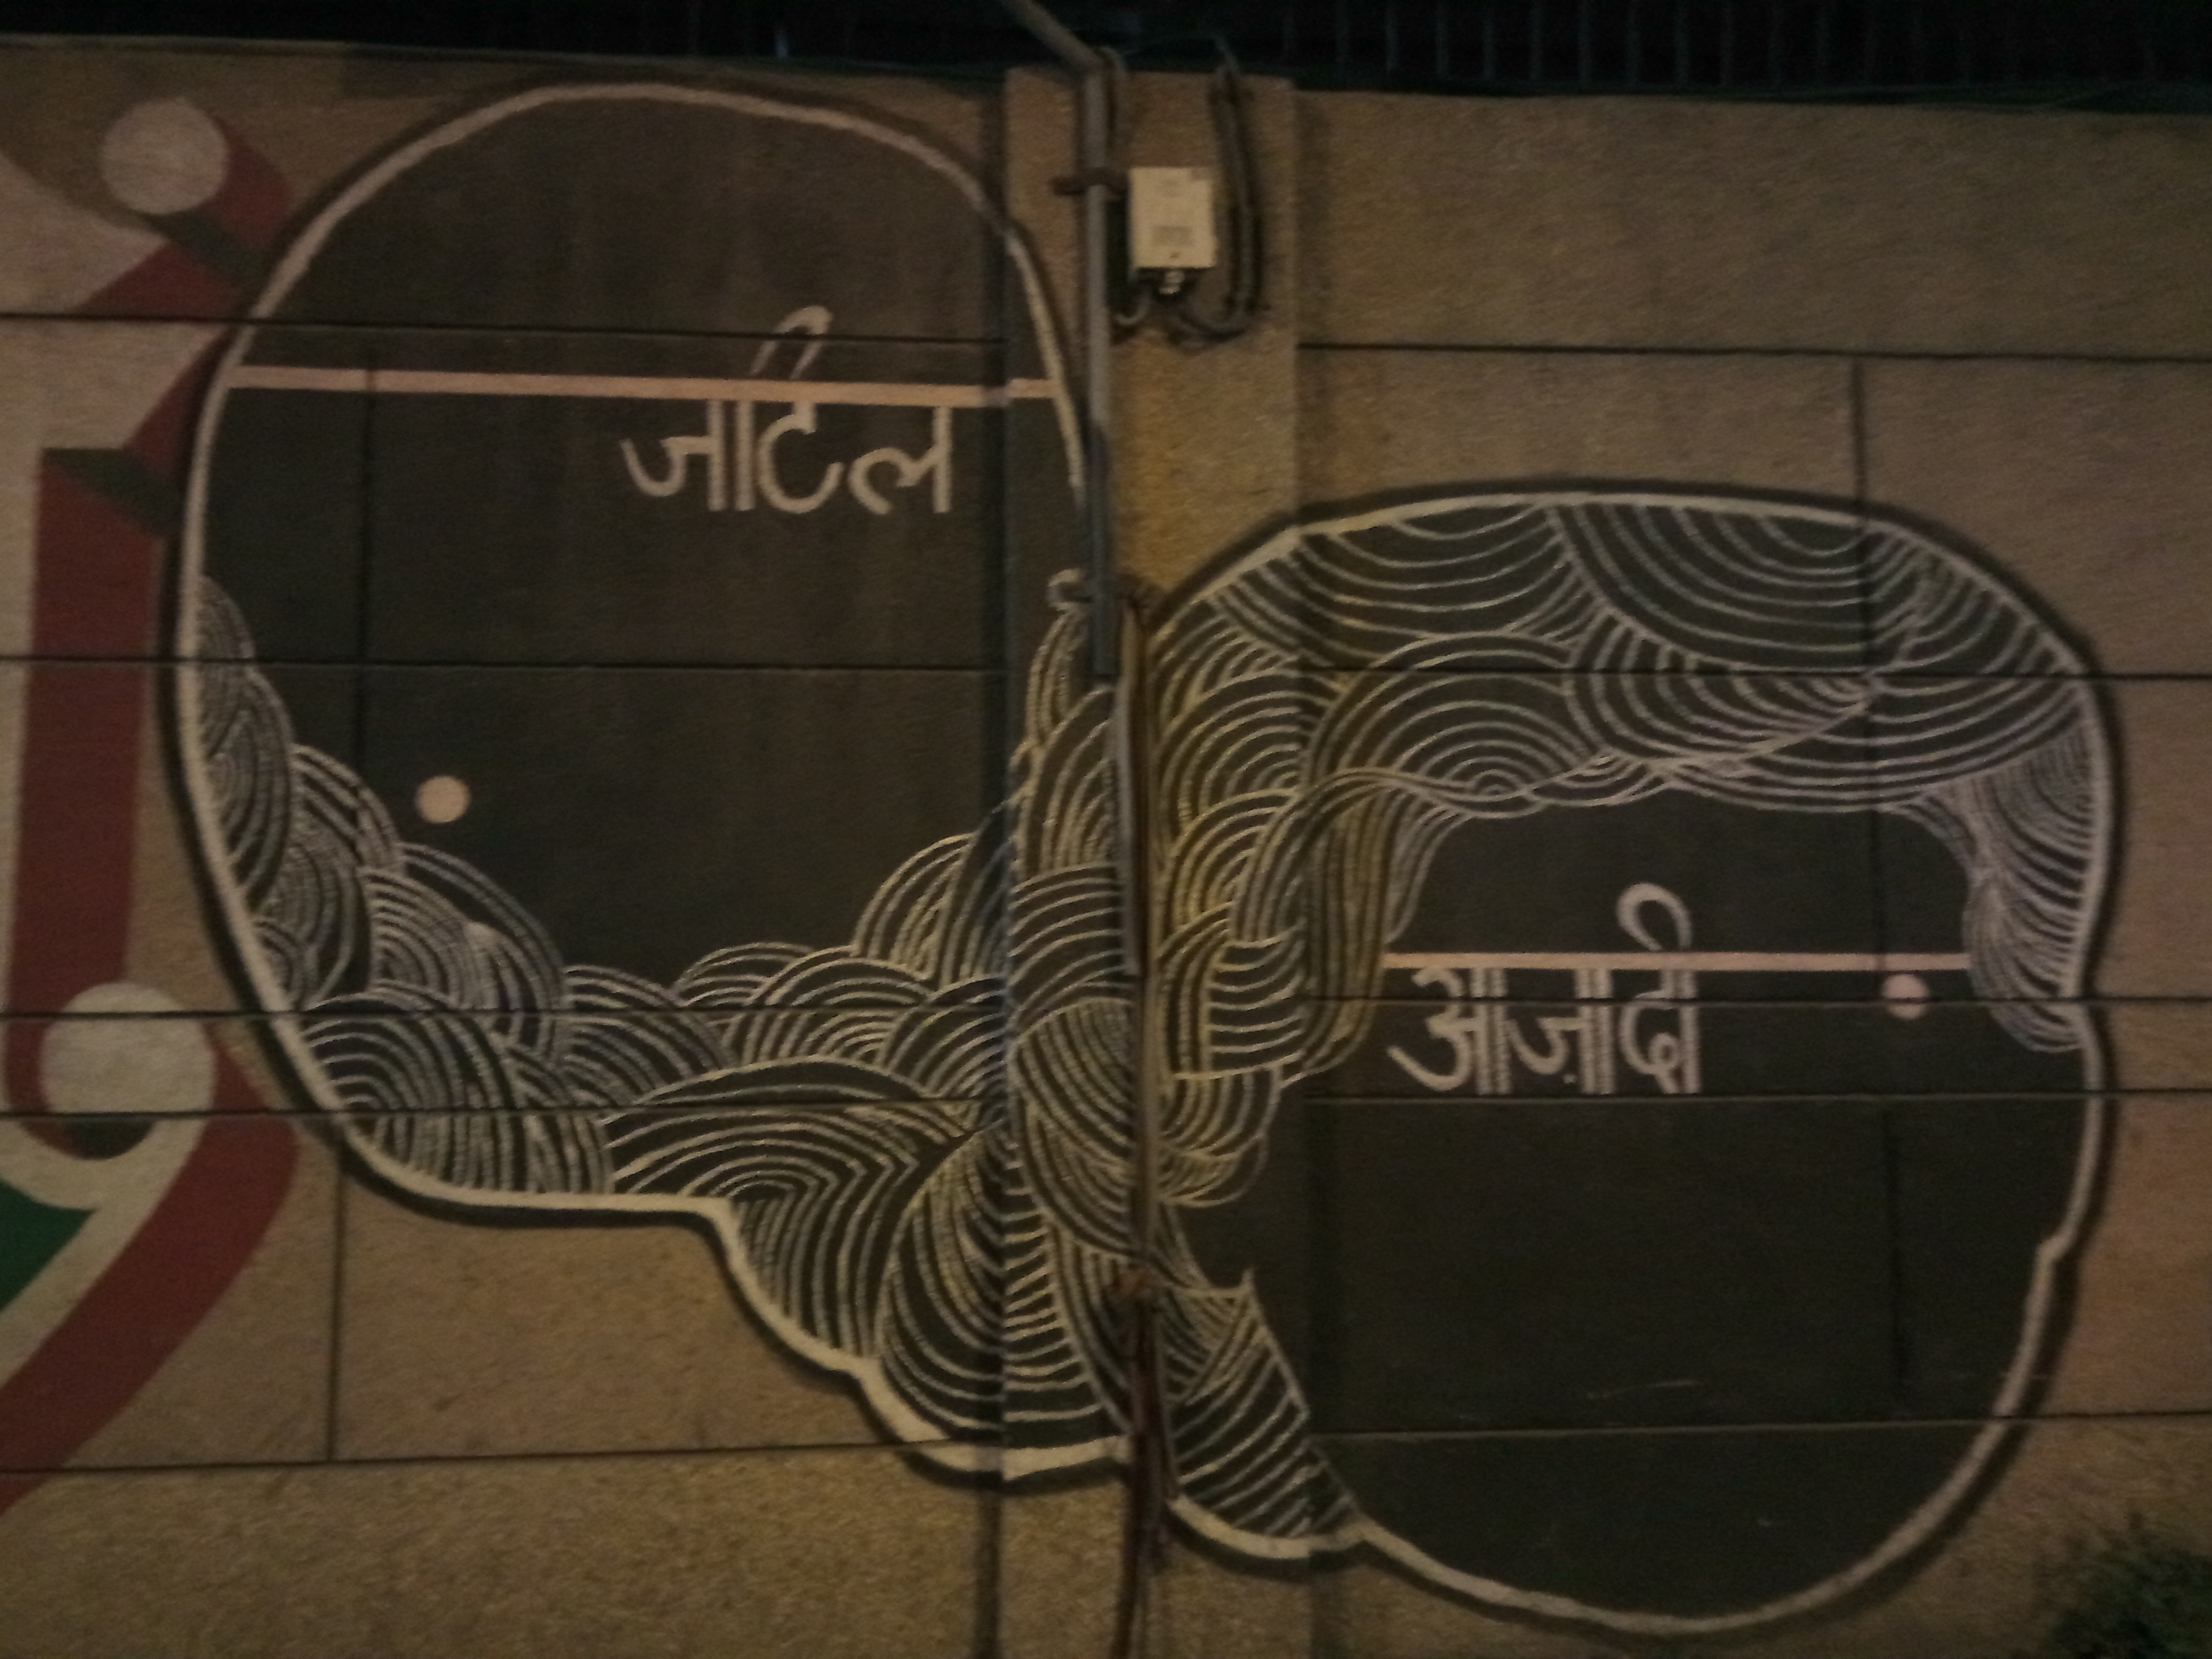 जटिल
आज़ादी